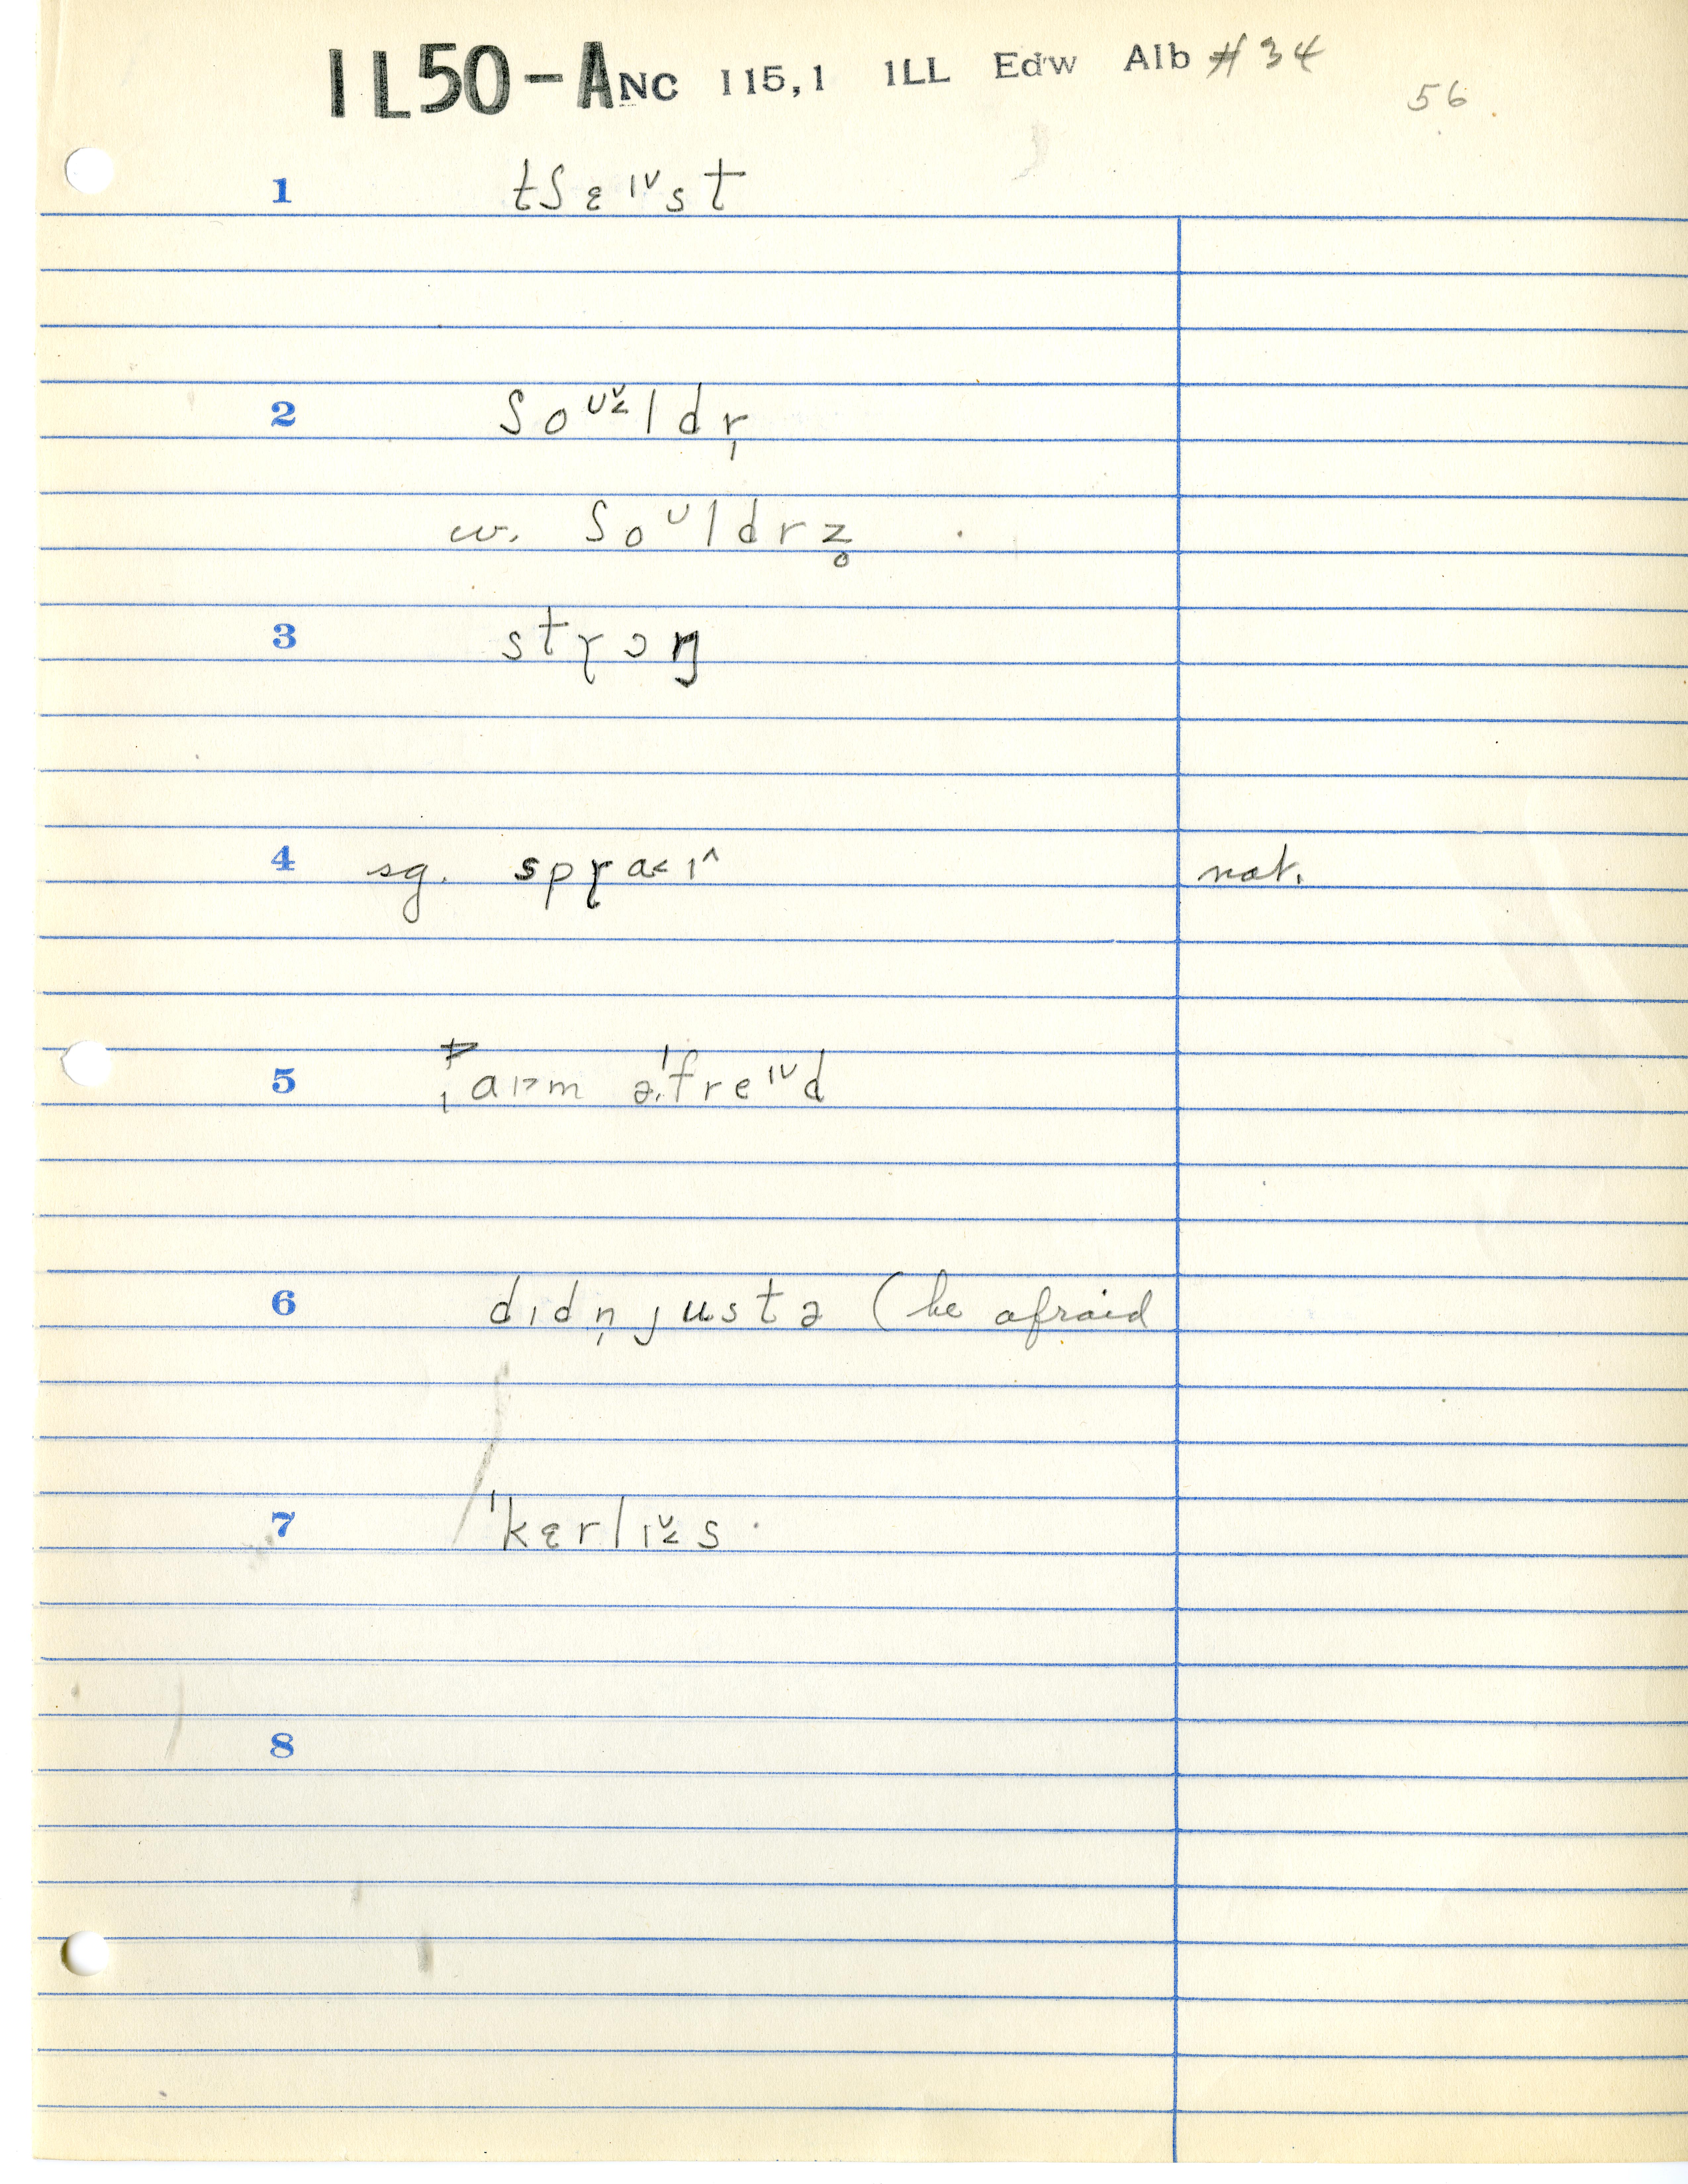 IL50-A NC 115,1 ILL Edw Alb #34
56
1 tʃɛᶦ˅st
2 ʃoᶷ˅˂ldr̩
w. ʃoᶷldrz̥
3 strɔŋ
4 sg. sprɑ˂ɪ^ nat.
5 ˌaɪ˃m əˈfreᶦ˅d
6 dɪdn̩ justə (be afraid
7 ˈkɛrlɪ˅˂s
8